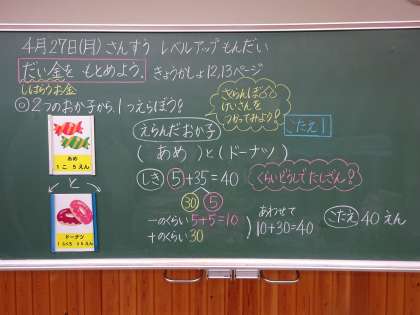 4月27日(月) さんすう レベルアップもんだい
だい金を もとめよう。 きょうかしょ12,13ページ
しはらうお金
◎2つのおか子から、1つえらぼう!
さくらんぼ
けいさんを
つかってみよう!
えらんだおか子
こたえ1
(あめ)と(ドーナツ)
あめ
1こ 5えん
と
ドーナツ
1ふくろ 35えん
しき 5+35=40
くらいどうしでたしざん?
30 5
一のくらい 5+5=10
十のくらい 30
あわせて
10+30=40
こたえ 40えん